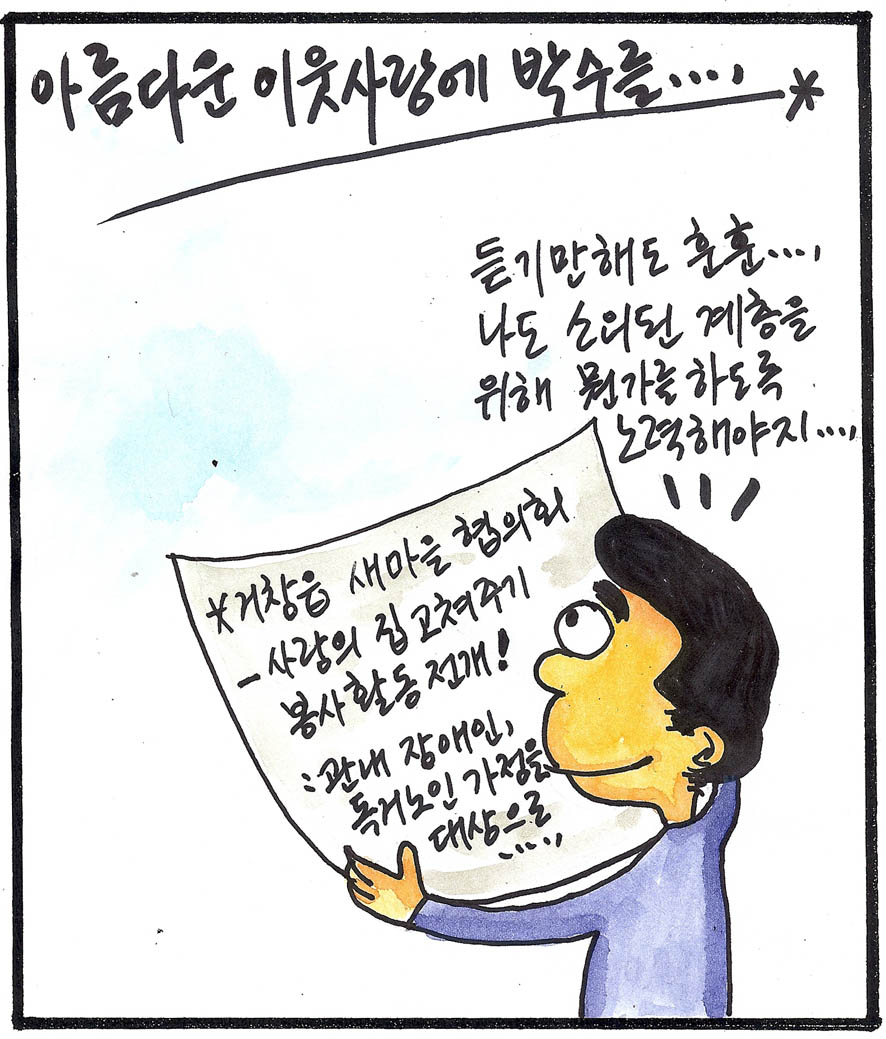 아름다운 이웃사랑에 박수를....,
듣기만해도 훈훈....,
나도 소외된 계층을
위해 뭔가를 하도록
노력해야지....,
*거창읍 새마을 협의회
-사랑의 집 고쳐주기
봉사활동 전개!
:관내 장애인,
독거노인 가정을
대상으로
....,